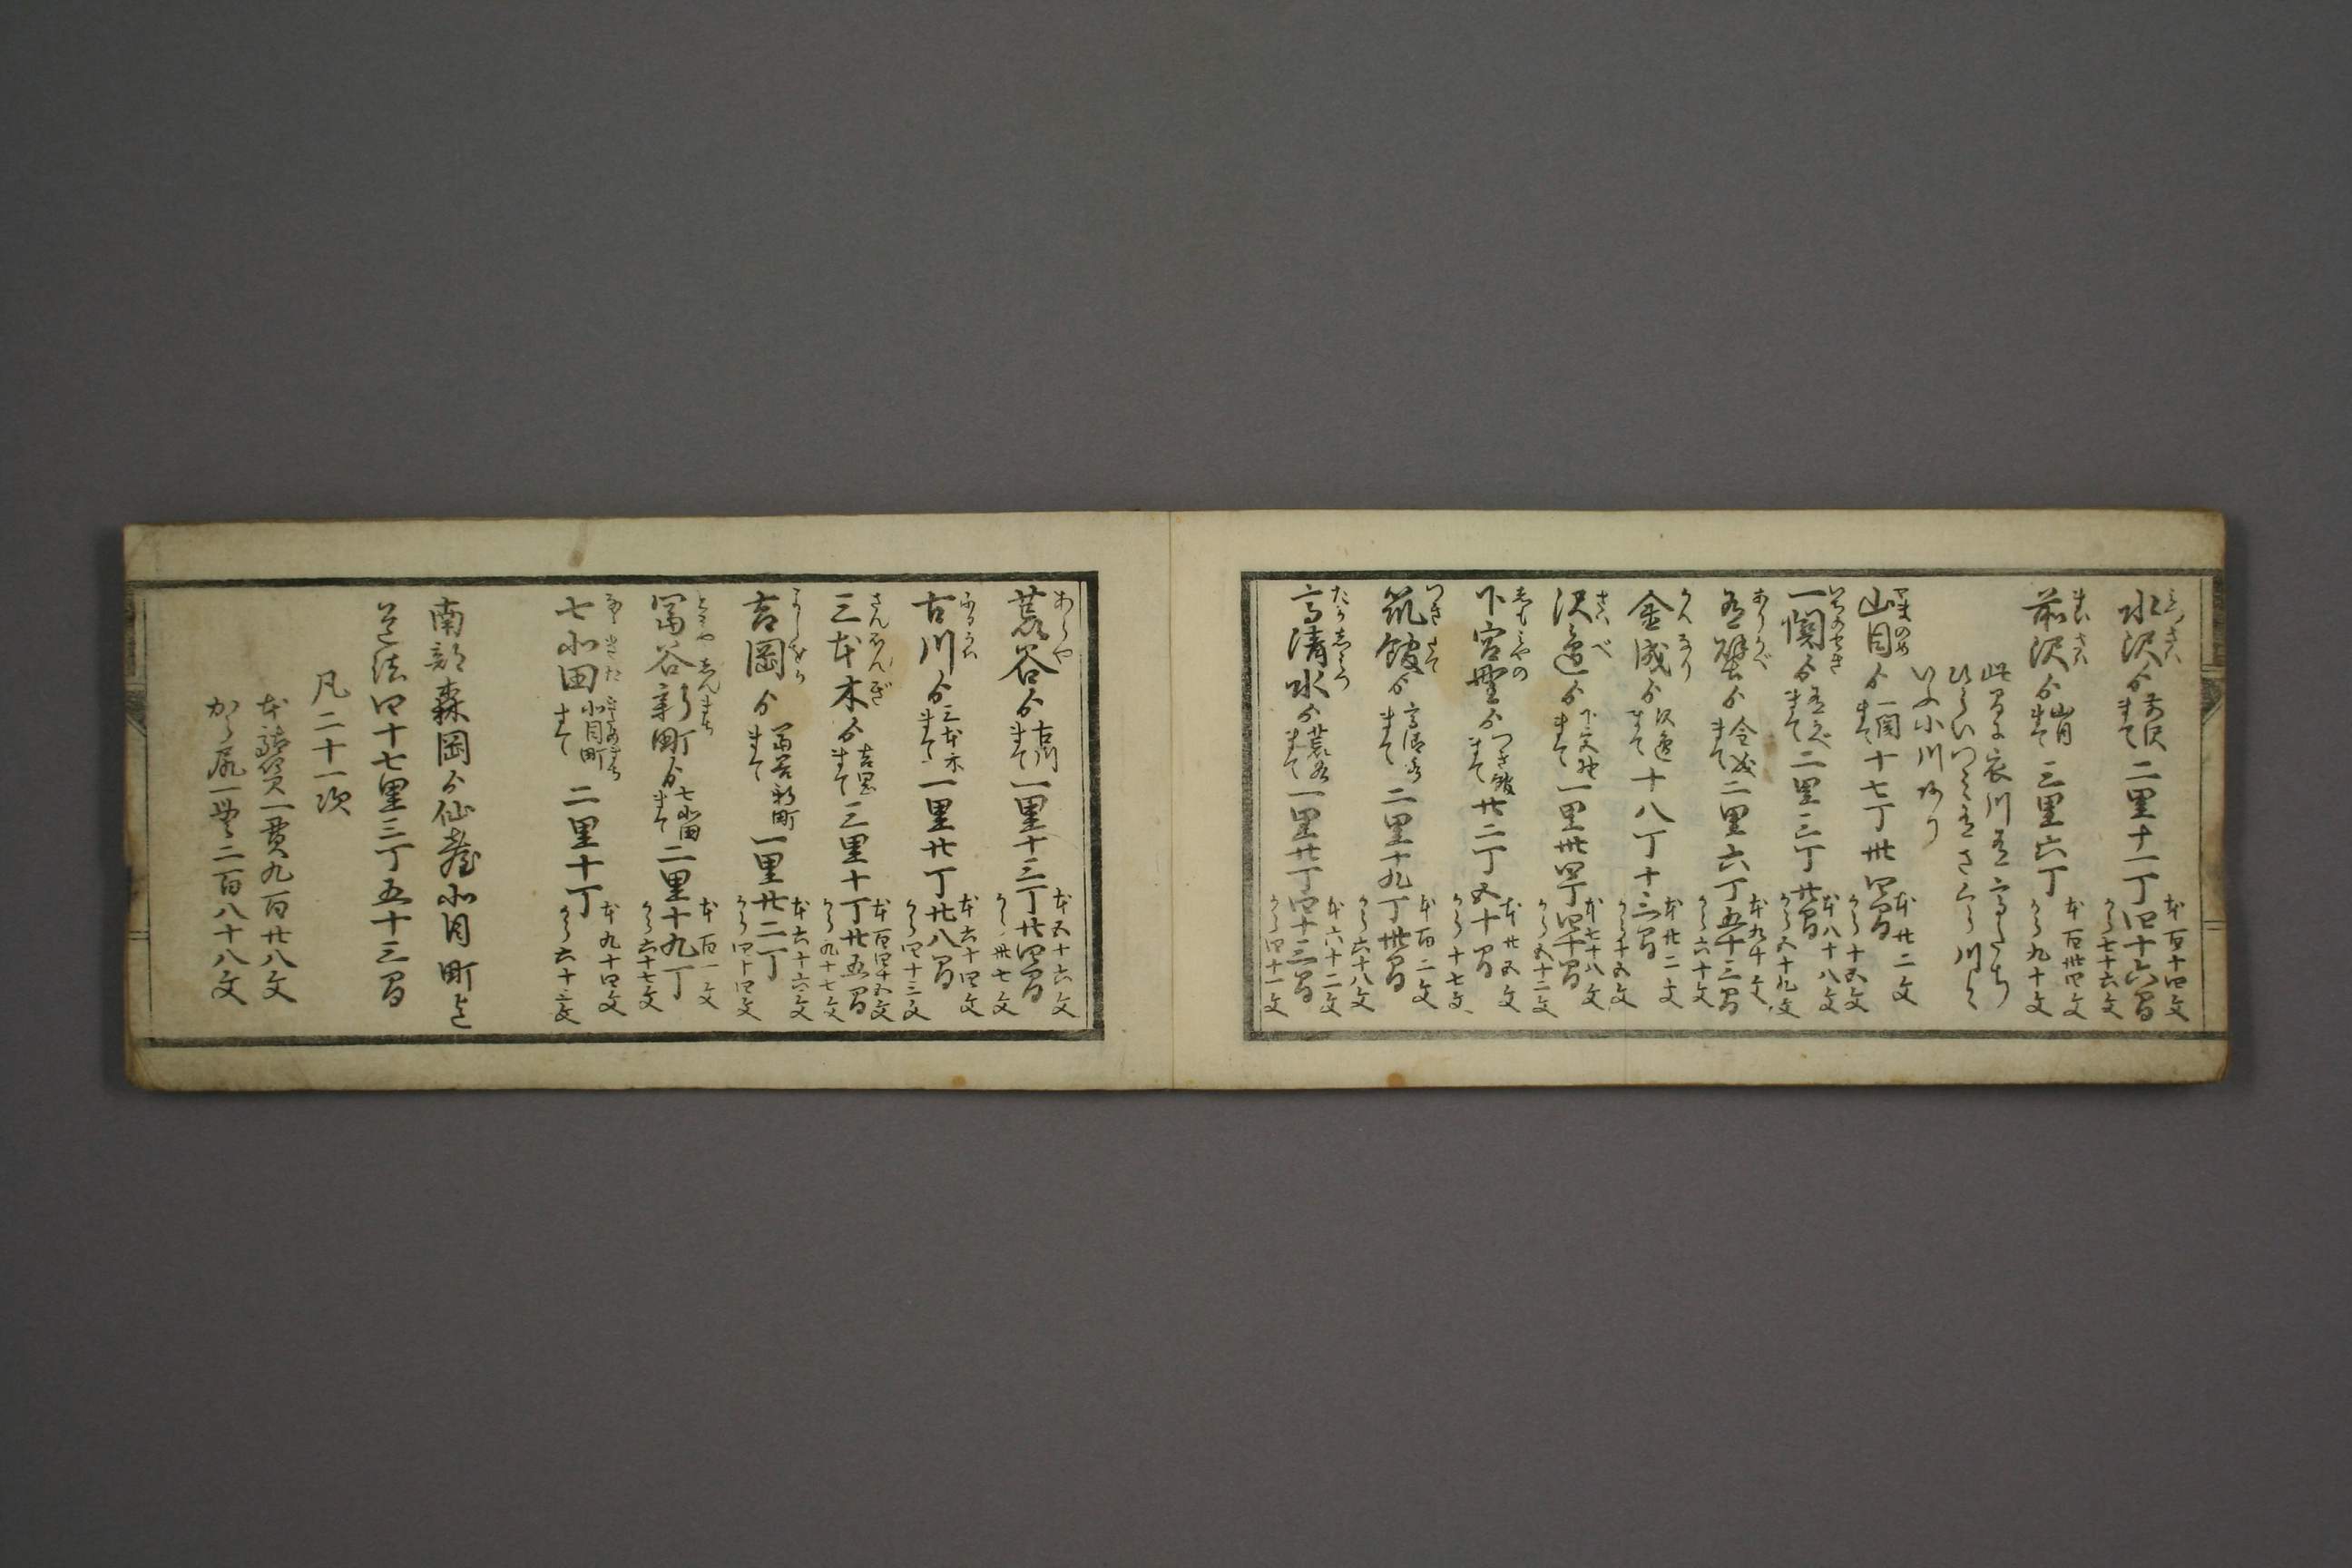 水沢ゟ前沢まて二里十一丁四十六間 本百十四文 から七十六文
前沢ゟ山ノ目まて三里六丁 本百卅四文 から九十文
此間に衣川有高たち
ひらいつミ有さくら川と
いふ小川あり
山目ゟ一関まて十七丁卅四間 本廿二文 から十五文
一関ゟ有かべまて二里三丁廿間 本八十八文 から五十九文
有壁ゟ金成まて二里六丁五十三間 本九十文 から六十文
金成ゟ沢邊まて十八丁十三間 本廿二文 から十五文
沢邊ゟ下宮野まて一里卅四丁四十間 本七十八文 から五十二文
下宮野ゟつき舘まて廿二丁五十間 本廿五文 から十七文
筑舘ゟ高清水まて二里十九丁卅間 本百二文 から六十八文
高清水ゟ荒谷まて一里廿丁四十三間 本六十二文 から四十一文
荒谷ゟ古川まて一里十三丁廿四間 本五十六文 から卅七文
古川ゟ三本木まて一里廿丁廿八間 本六十四文 から四十三文
三本木ゟ吉岡まて三里十丁廿五間 本百四十五文 から九十七文
吉岡ゟ冨谷新町まて一里廿二丁 本六十六文 から四十四文
冨谷新町ゟ七北田まて二里十九丁 本百一文 から六十七文
七北田 北目町まて二里十丁 本九十四文 から六十二文
南部森岡ゟ仙臺北目町迄
道法四十七里三丁五十三間
凡二十一次
本駄賃一貫九百廿八文
から尻一貫二百八十八文